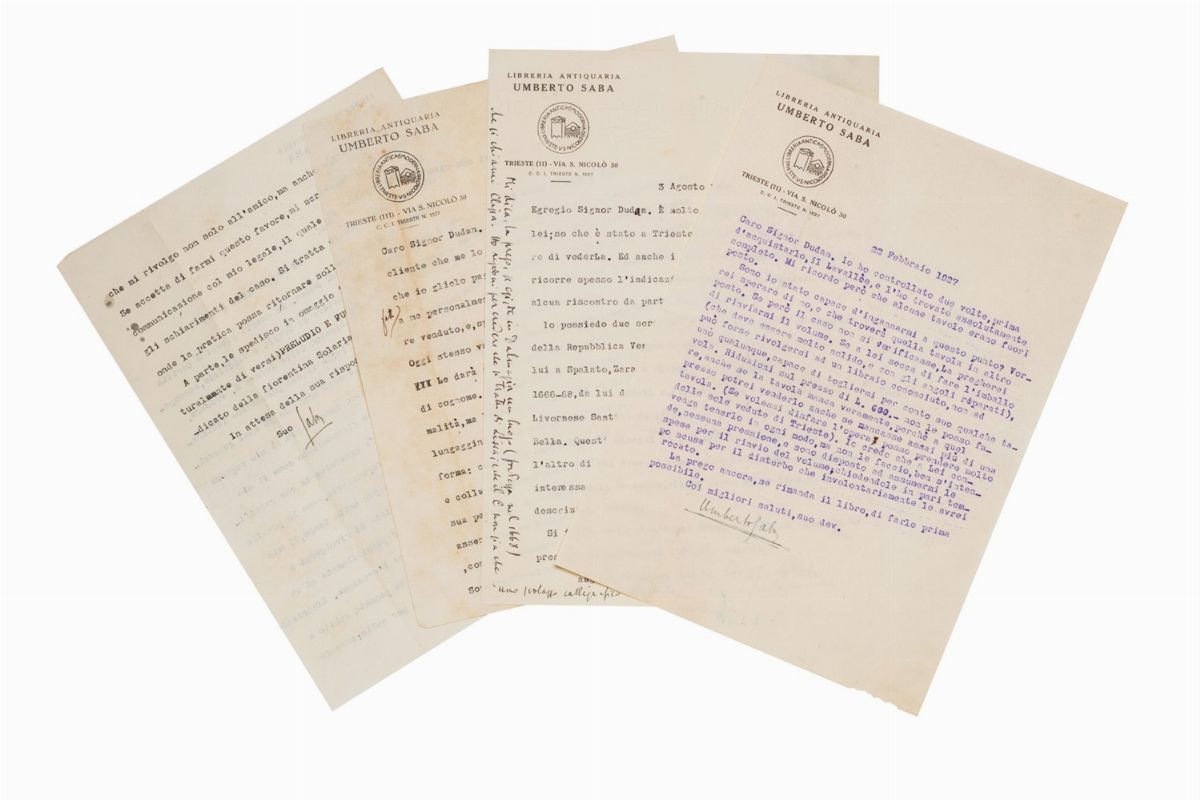 che mi rivolgo non solo all'amico, ma anche
Se accetta di farmi questo favore, mi
comunicazione col mio legale, il quale
gli schiarimenti del caso. Si tratta
onde la pratica possa ritornare
A parte, le spedisco in omaggio
di versi) PRELUDIO E FU
dicato della fiorentina Solaria
In attesa della sua rispo
Suo Saba
LIBRERIA ANTIQUARIA
UMBERTO SABA
LIBRERIA ANTICA E MODERNA
TRIESTE V.S. NICOLO
TRIESTE (111) - VIA S. NICOLÒ 30
C. C. I. TRIESTE N. 1527
Caro Signor Dudan.
cliente che me lo
che io glielo pa
a me personalme
re venduto, e,
Oggi stesso
XXX Le darà
di cognome.
malità, ma
lungaggin
forma: c
e colla
sua p
asse
,co
So
LIBRERIA ANTIQUARIA
UMBERTO SABA
LIBRERIA ANTICA E MODERNA
TRIESTE V.S. NICOLO
TRIESTE (11) - VIA S. NICOLÒ 30
C. C. I. TRIESTE N. 1527
3 Agosto
Egregio Signor Dudan. È molto
lei; so che è stato a Trieste
re di vederLa. Ed anche i
ricorre spesso l'indican
alcun riscontro da part
Io possiedo due
della Repubblica Ve
lui a Spalato, Zara
1666-68, da lui d
Livornese Sant
Bella. Quest
l'altro di
interessa
descriz
Si
pre
Mi dica, la prego, esiste in Dalmazia un luogo (nel 1668)
che si chiami Clissa.
uno
LIBRERIA ANTIQUARIA
UMBERTO SABA
LIBRERIA ANTICA E MODERNA
TRIESTE V.S. NICOLO
TRIESTE (11) - VIA S. NICOLÒ 30
C. C. I. TRIESTE N. 1527
22 Febbraio 1927
Caro Signor Dudan. Io ho controllato due volte, prima
d'acquistarlo, il Lavallée, e l'ho trovato assolutamente
completo. Mi ricordo però che alcune tavole erano fuori
posto.
Sono io stato capace d'ingannarmi a questo punto? Vor-
rei sperare di no, e che troverà quella tavola in altro
posto. Se però il caso non si verificasse, La pregherei
di rinviarmi il volume. Se a lei secca di fare l'imballo
(che deve essere molto solido, e con gli angoli riparati),
può forse rivolgersi ad un libraio conosciuto, non ad
uno qualunque, capace di togliermi per conto suo qualche ta-
vola. Riduzioni sul prezzo di L. 600.- non le posso fa-
re, anche se la tavola manca veramente, perchè a quel
prezzo potrei venderlo anche se mancasse assai più di una
tavola. (Se volessi disfare l'opera, posso prendere molto
delle sole vedute di Trieste). Io credo che a Lei con-
venga tenerlo in ogni modo, ma non le faccio, ben s'inten-
de, nessuna pressione, e sono disposto ad assumermi le
spese per il riavio del volume, chiedendole in pari tem-
po scusa per il disturbo che involontariamente le avrei
recato.
La prego ancora, se rimanda il libro, di farlo prima
possibile.
Coi migliori saluti, suo dev.
Umberto Saba